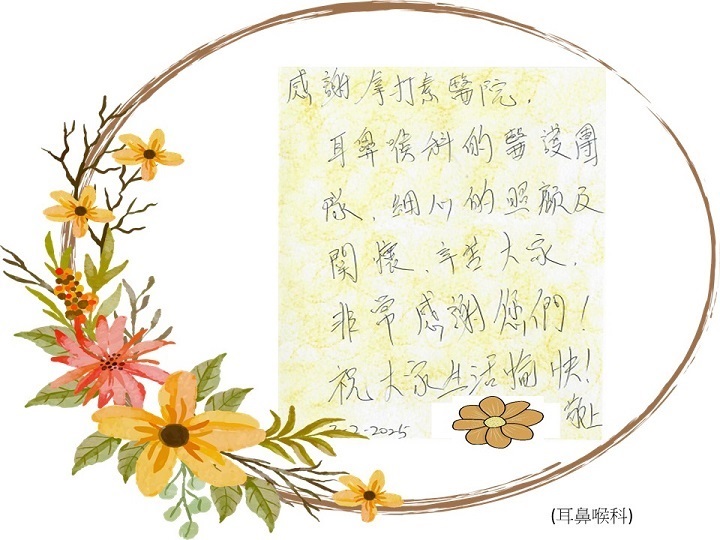 感謝拿打素醫院，
耳鼻喉科的醫護團
隊、細心的照顧及
關懷、辛苦大家，
非常感謝您們！
祝大家生活愉快！
敬上
2-2-2025
(耳鼻喉科)